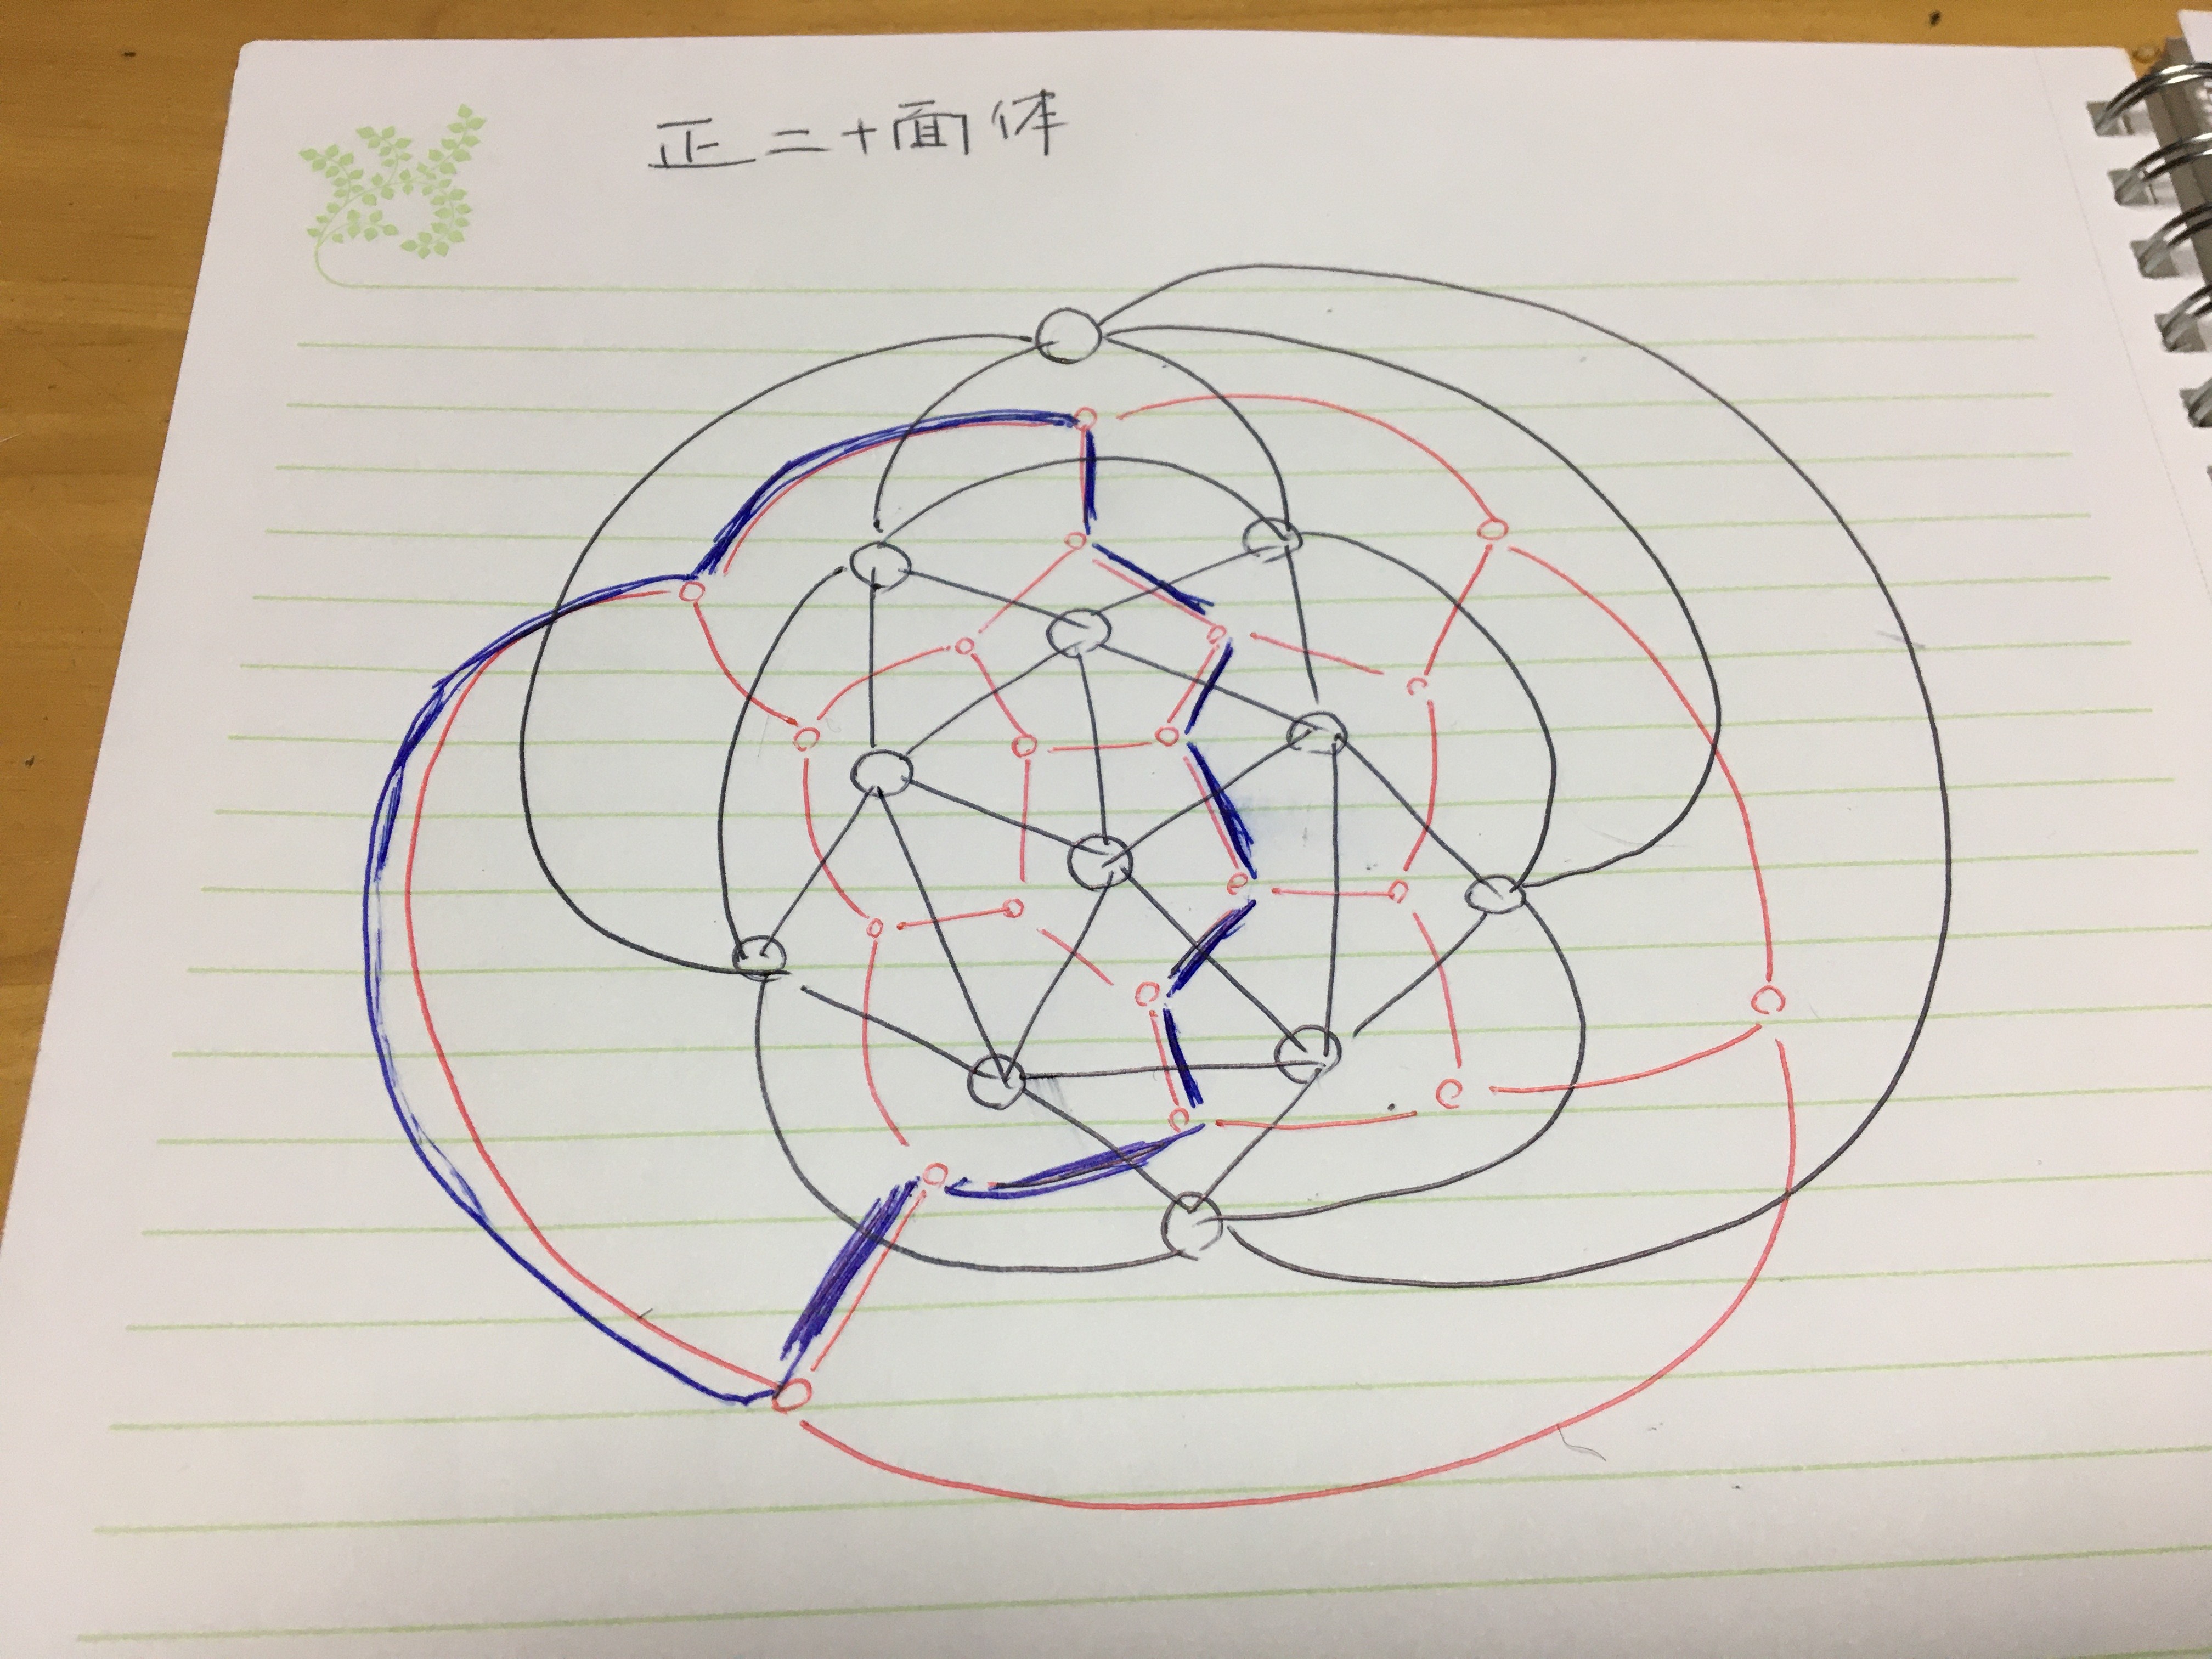 正二十面体